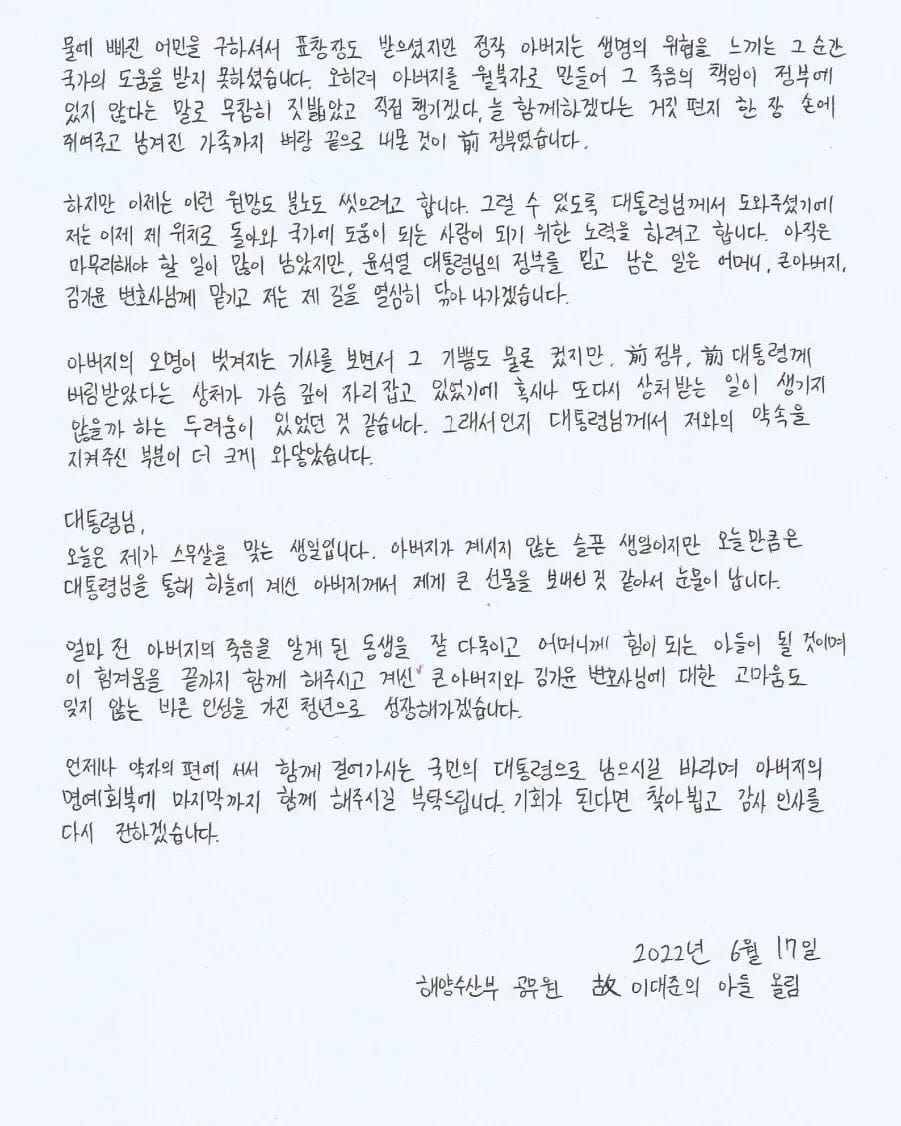 물에 빠진 어민을 구하셔서 표창장도 받으셨지만 정작 아버지는 생명의 위협을 느끼는 그 순간
국가의 도움을 받지 못하셨습니다. 오히려 아버지를 월북자로 만들어 그 죽음의 책임이 정부에
있지 않다는 말로 무참히 짓밟았고 직접 챙기겠다, 늘 함께하겠다는 거짓 편지 한 장 손에
쥐여주고 남겨진 가족까지 벼랑 끝으로 내몬 것이 前 정부였습니다.
하지만 이제는 이런 원망도 분노도 씻으려고 합니다. 그럴 수 있도록 대통령님께서 도와주셨기에
저는 이제 제 위치로 돌아와 국가에 도움이 되는 사람이 되기 위한 노력을 하려고 합니다. 아직은
마무리해야 할 일이 많이 남았지만, 윤석열 대통령님의 정부를 믿고 남은 일은 어머니, 큰아버지,
김기윤 변호사님께 맡기고 저는 제 길을 열심히 닦아 나가겠습니다.
아버지의 오명이 벗겨지는 기사를 보면서 그 기쁨도 물론 컸지만, 前정부, 前대통령께
버림받았다는 상처가 가슴 깊이 자리잡고 있었기에 혹시나 또다시 상처받는 일이 생기지
않을까 하는 두려움이 있었던 것 같습니다. 그래서인지 대통령님께서 저와의 약속을
지켜주신 부분이 더 크게 와닿았습니다.
대통령님,
오늘은 제가 스무살을 맞는 생일입니다. 아버지가 계시지 않는 슬픈 생일이지만 오늘만큼은
대통령님을 통해 하늘에 계신 아버지께서 제게 큰 선물을 보내신 것 같아서 눈물이 납니다.
얼마 전 아버지의 죽음을 알게 된 동생을 잘 다독이고 어머니께 힘이 되는 아들이 될 것이며
이 힘겨움을 끝까지 함께 해주시고 계신 큰아버지와 김기윤 변호사님에 대한 고마움도
잊지 않는 바른 인성을 가진 청년으로 성장해가겠습니다.
언제나 약자의 편에 서서 함께 걸어가시는 국민의 대통령으로 남으시길 바라며 아버지의
명예회복에 마지막까지 함께 해주시길 부탁드립니다. 기회가 된다면 찾아뵙고 감사 인사를
다시 전하겠습니다.
2022년 6월 17일
해양수산부 공무원 故 이대준의 아들 올림